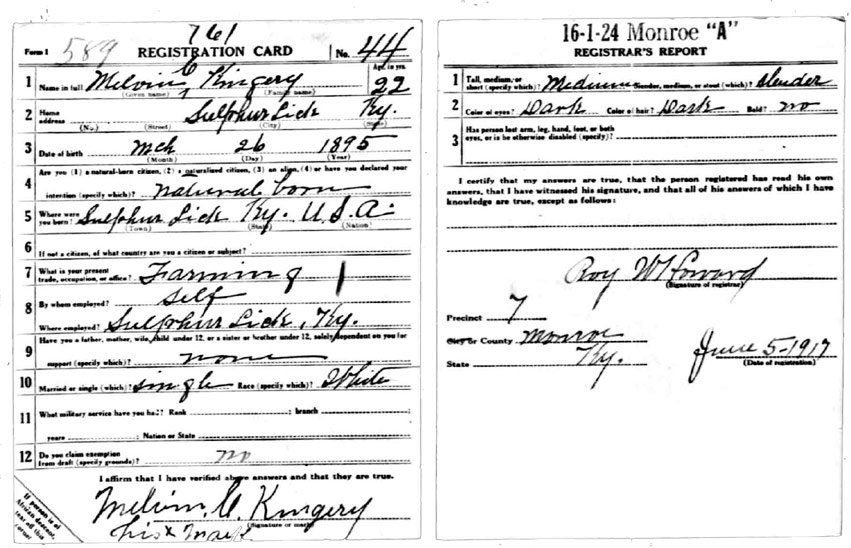 761
Form 1 589 REGISTRATION CARD No. 44
1 Name in full Melvin C Kingery Age, in yrs. 22
(Given name) (Family name)
2 Home address Sulphur Lick Ky.
(No.) (Street) (City) (State)
3 Date of birth Mch 26 1895
(Month) (Day) (Year)
4 Are you (1) a natural-born citizen, (2) a naturalized citizen, (3) an alien, (4) or have you declared your
intention (specify which)? natural born
5 Where were you born? Sulphur Lick Ky. U.S.A.
(Town) (State) (Nation)
6 If not a citizen, of what country are you a citizen or subject?
7 What is your present trade, occupation, or office? Farming
8 By whom employed? Self
Where employed? Sulphur Lick, Ky.
9 Have you a father, mother, wife, child under 12, or a sister or brother under 12, solely dependent on you for
support (specify which)? none
10 Married or single (which)? single Race (specify which)? White
11 What military service have you had? Rank ; branch ;
years ; Nation or State
12 Do you claim exemption from draft (specify grounds)? no
I affirm that I have verified above answers and that they are true.
Melvin C. Kingery
(Signature or mark)
his x mark
If person is of
African descent,
tear off this
corner
16-1-24 Monroe "A"
REGISTRAR'S REPORT
1 Tall, medium, or short (specify which)? Medium Slender, medium, or stout (which)? slender
2 Color of eyes? Dark Color of hair? Dark Bald? no
3 Has person lost arm, leg, hand, foot, or both
eyes, or is he otherwise disabled (specify)?
I certify that my answers are true, that the person registered has read his own
answers, that I have witnessed his signature, and that all of his answers of which I have
knowledge are true, except as follows:
Roy W Howard
(Signature of registrar)
Precinct 7
City or County Monroe
State Ky.
June 5-1917
(Date of registration)